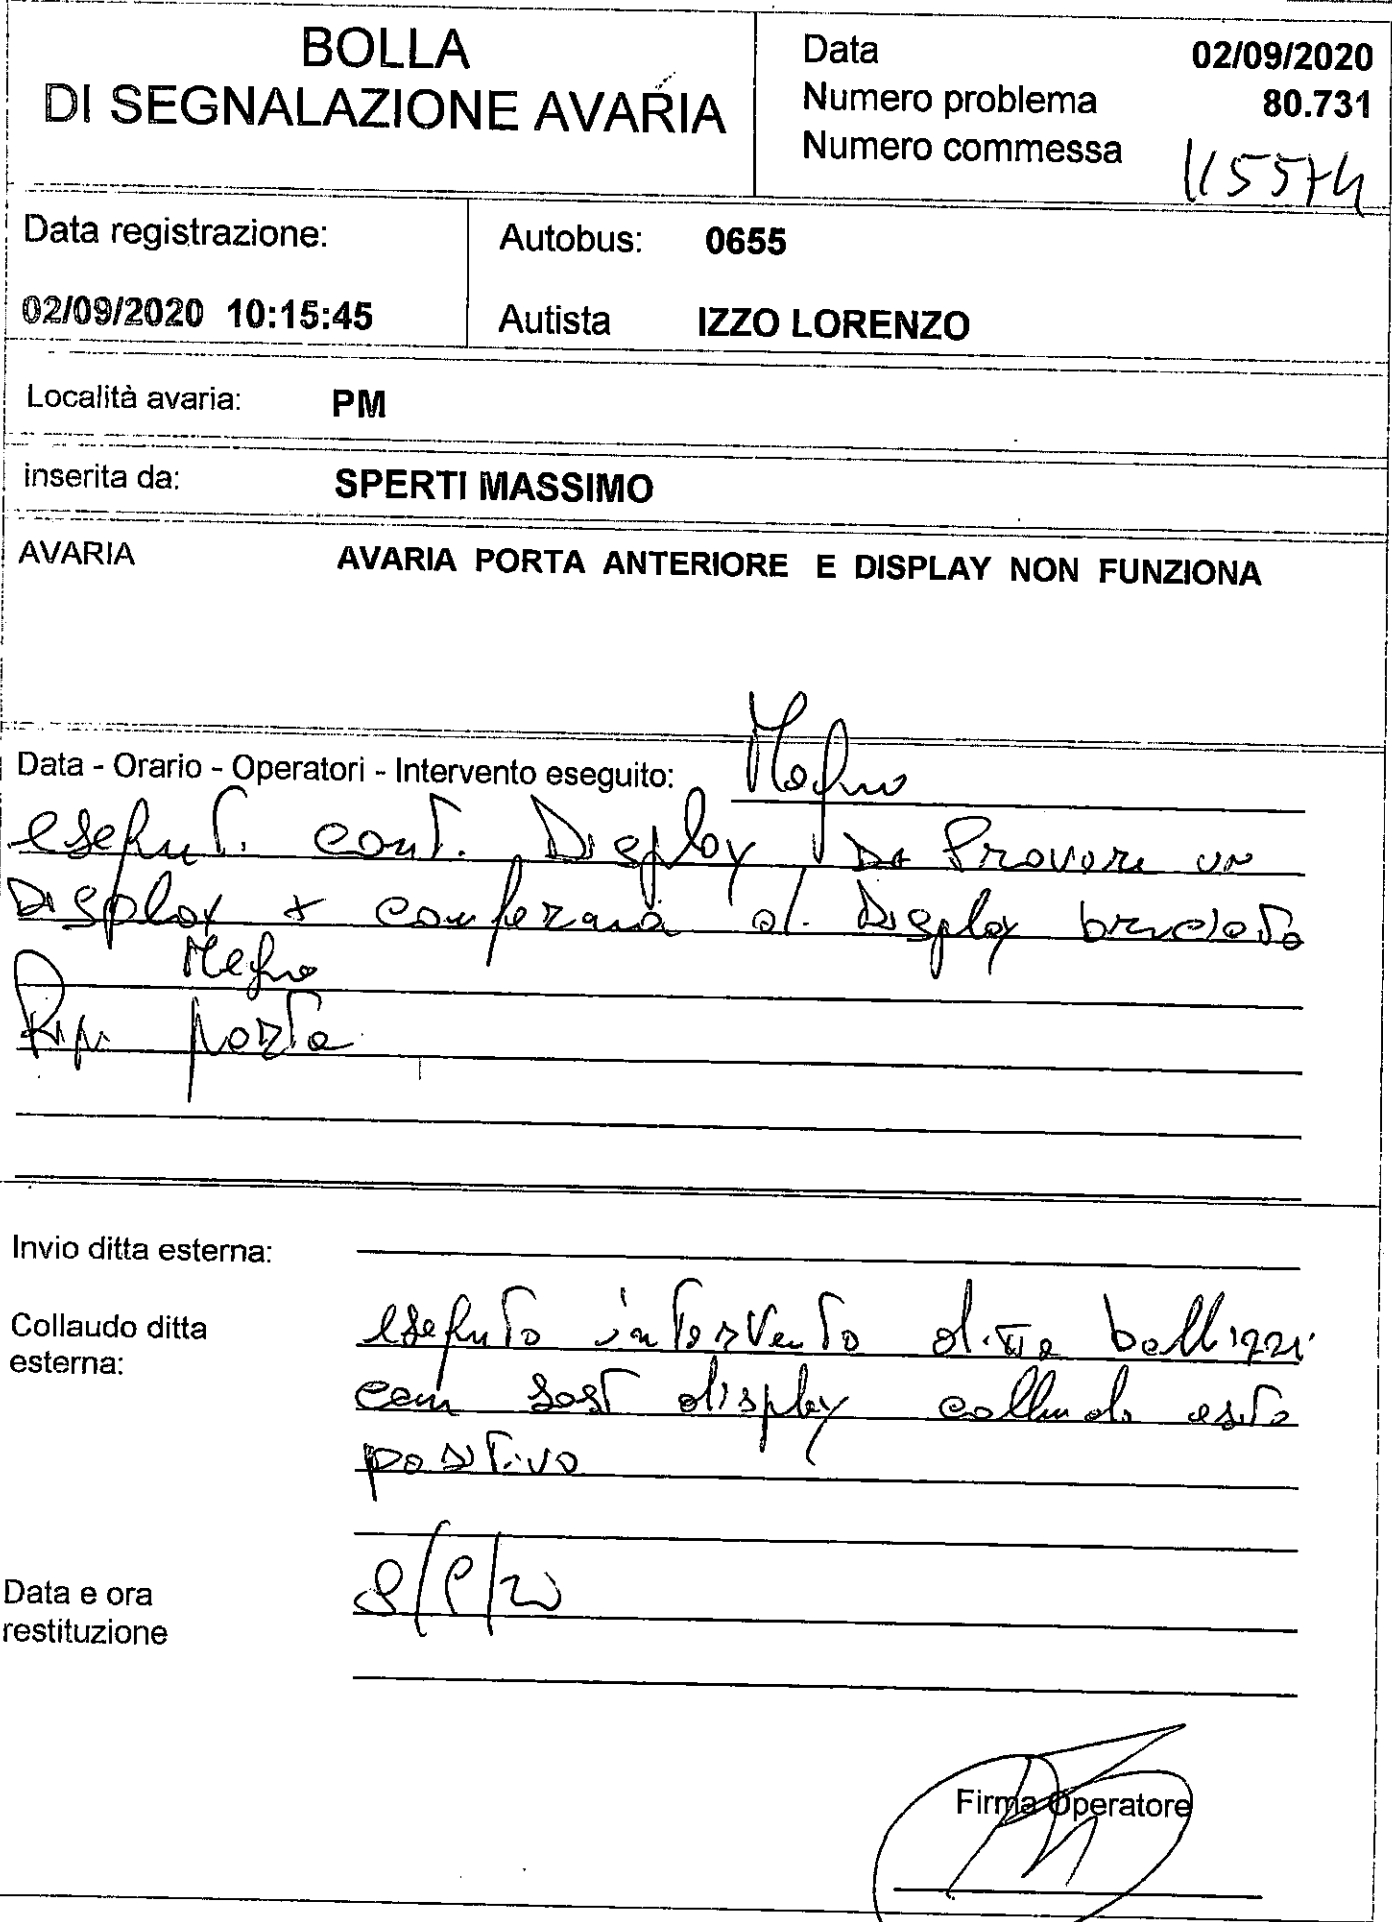 BOLLA
DI SEGNALAZIONE AVARIA
Data 02/09/2020
Numero problema 80.731
Numero commessa 115574
Data registrazione:
02/09/2020 10:15:45
Autobus: 0655
Autista IZZO LORENZO
Località avaria: PM
inserita da: SPERTI MASSIMO
AVARIA AVARIA PORTA ANTERIORE E DISPLAY NON FUNZIONA
Data - Orario - Operatori - Intervento eseguito:
eseguit. cont. Display Da Provare un
Display x conferma d. Display bruciato
Rip. porta
Invio ditta esterna:
Collaudo ditta
esterna:
eseguito intervento ditta bellizzi
con sost display collaudo esito
positivo
Data e ora
restituzione
8/9/20
Firma Operatore